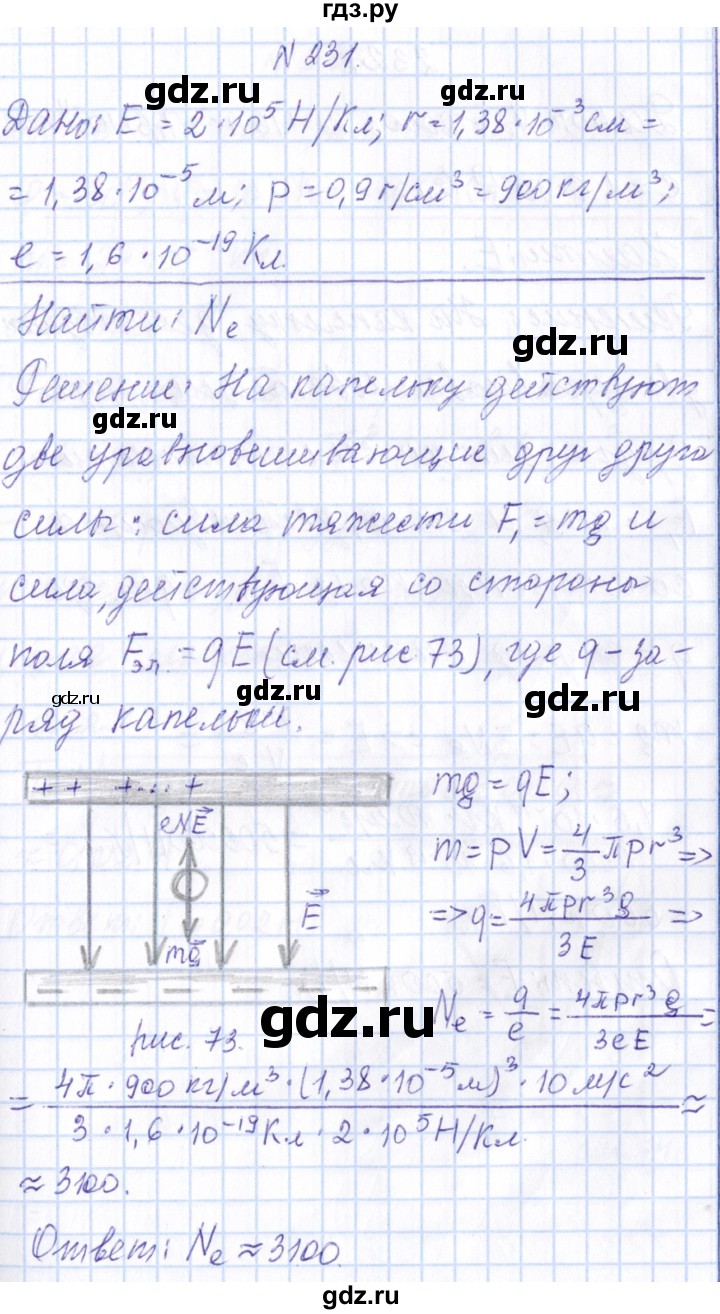 гдз.ру
N 231.
gdz.ru
gdz.ru
Дано: E = 2·10⁵ Н/Кл; r = 1,38·10⁻³ см =
= 1,38·10⁻⁵ м; ρ = 0,9 г/см³ = 900 кг/м³;
e = 1,6·10⁻¹⁹ Кл.
Найти: Nₑ
gdz.ru
Решение: На капельку действуют
gdz.ru
две уравновешивающие друг друга
силы: сила тяжести F₁ = mg и
gdz.ru
сила, действующая со стороны
поля Fэл. = qE (см. рис 73), где q - за-
gdz.ru
gdz.ru
gdz.ru
ряд капельки.
+ + +... +
eNE⃗
mg⃗
E⃗
рис. 73.
mg = qE;
m = ρV = 4/3 πρr³ =>
=> q = 4πρr³g / 3E =>
gdz.ru
Nₑ = q/e = 4πρr³g / 3eE =
= 4π · 900 кг/м³ · (1,38·10⁻⁵ м)³ · 10 м/с² / 3 · 1,6 · 10⁻¹⁹ Кл · 2 · 10⁵ Н/Кл ≈
gdz.ru
gdz.ru
≈ 3100.
Ответ: Nₑ ≈ 3100.
gdz.ru
gdz.ru